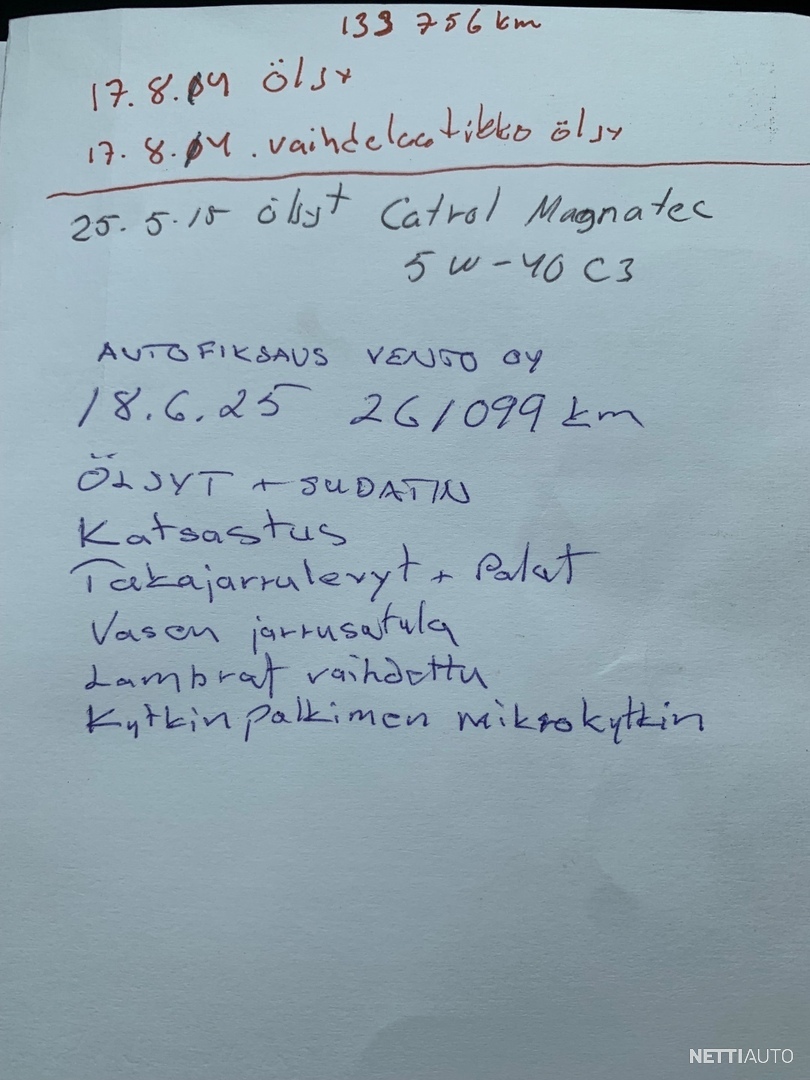 133 756 km
17.8.04 öljy
17.8.04. vaihdelaatikko öljy
25.5.15 öljyt Catrol Magnatec
5W-40 C3
AUTOFIKSAUS VENTO OY
18.6.25 261099 km
ÖLJYT + SUDATIN
Katsastus
Takajarrulevyt + Palat
Vasen jarrusatula
Lambrat vaihdettu
Kytkin palkimen mikrokytkin
NETTIAUTO